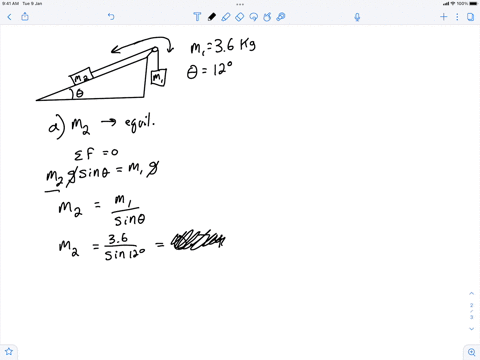 9:41 AM Tue 9 Jan
100%
m₂
m₁
θ
m₁=3.6 Kg
θ=12°
a) m₂ → equil.
ΣF=0
m₂ g sinθ = m₁ g
m₂ = m₁/sinθ
m₂ = 3.6/sin12° =
2
/
3